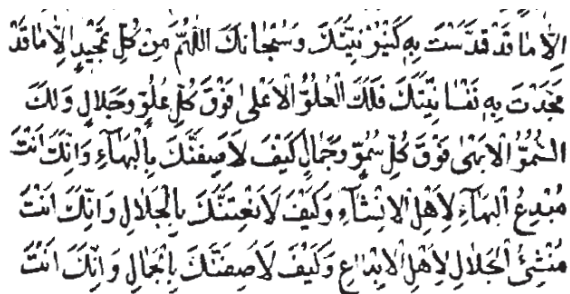 إِلَّا مَا قَدْ قَدَّسْتَ بِهِ كَيْنُونِيَّتَكَ وَسُبْحَانَكَ اللّٰهُمَّ مِنْ كُلِّ تَمْجِيدٍ إِلَّا مَا قَدْ
مَجَّدْتَ بِهِ نَفْسَانِيَّتَكَ فَلَكَ الْعُلُوُّ الْأَعْلَىٰ فَوْقَ كُلِّ عُلُوٍّ وَجَلَالٍ وَلَكَ
السُّمُوُّ الْأَبْهَىٰ فَوْقَ كُلِّ سُمُوٍّ وَجَمَالٍ كَيْفَ لَأَصِفَنَّكَ بِالْبَهَآءِ وَإِنَّكَ أَنْتَ
مُبْدِعُ الْبَهَآءِ لِأَهْلِ الْإِنْشَآءِ وَكَيْفَ لَأَنْعِتَنَّكَ بِالْجَلَالِ وَإِنَّكَ أَنْتَ
مُنْشِئُ الْجَلَالِ لِأَهْلِ الْإِبْدَاعِ وَكَيْفَ لَأَصِفَنَّكَ بِالْجَمَالِ وَإِنَّكَ أَنْتَ